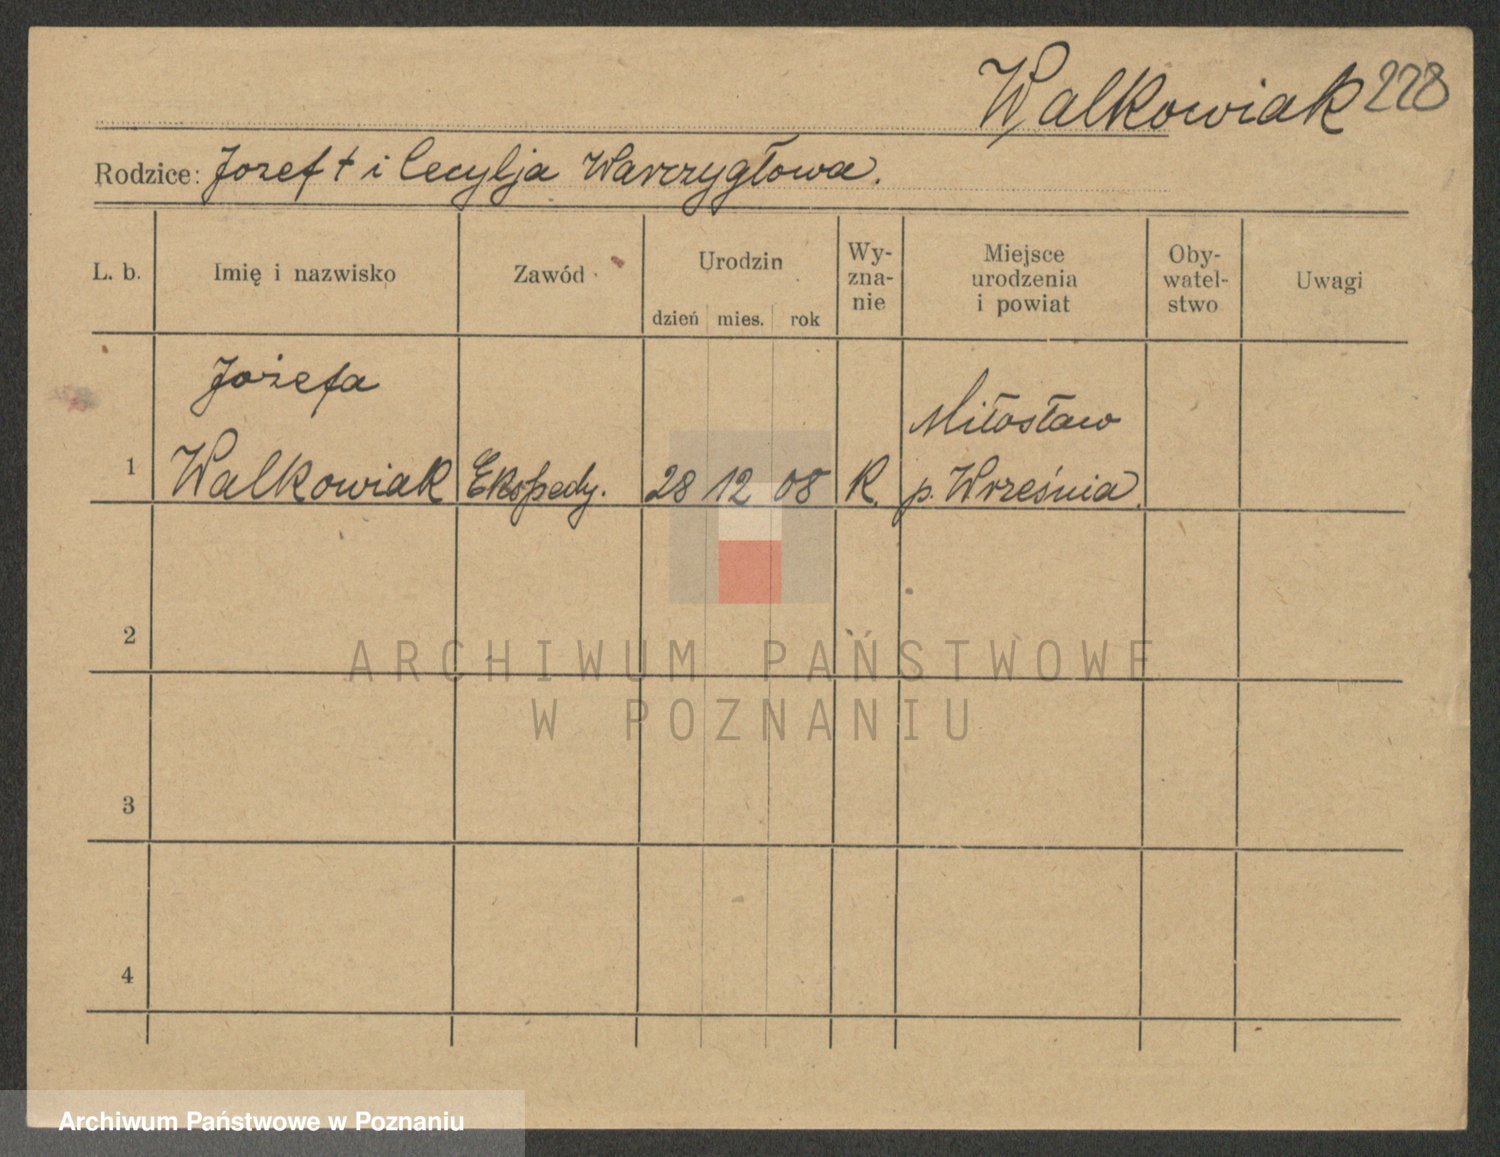 Walkowiak 228
Rodzice: Jozef † i Cecylja Warzygłowa.
L. b. Imię i nazwisko Zawód Urodzin Wy-zna-nie Miejsce urodzenia i powiat Oby-watel-stwo Uwagi
dzień mies. rok
Jozefa Miłosław
1 Walkowiak Ekspedy. 28 12 08 R. p. Września
2
ARCHIWUM PAŃSTWOWE
W POZNANIU
3
4
Archiwum Państwowe w Poznaniu